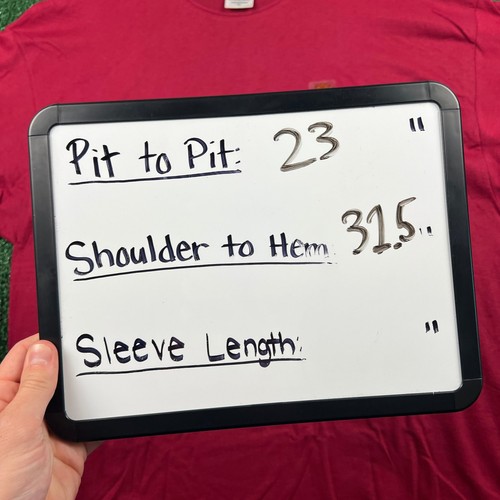 Pit to Pit: 23 "
Shoulder to Hem: 31.5"
Sleeve Length: "